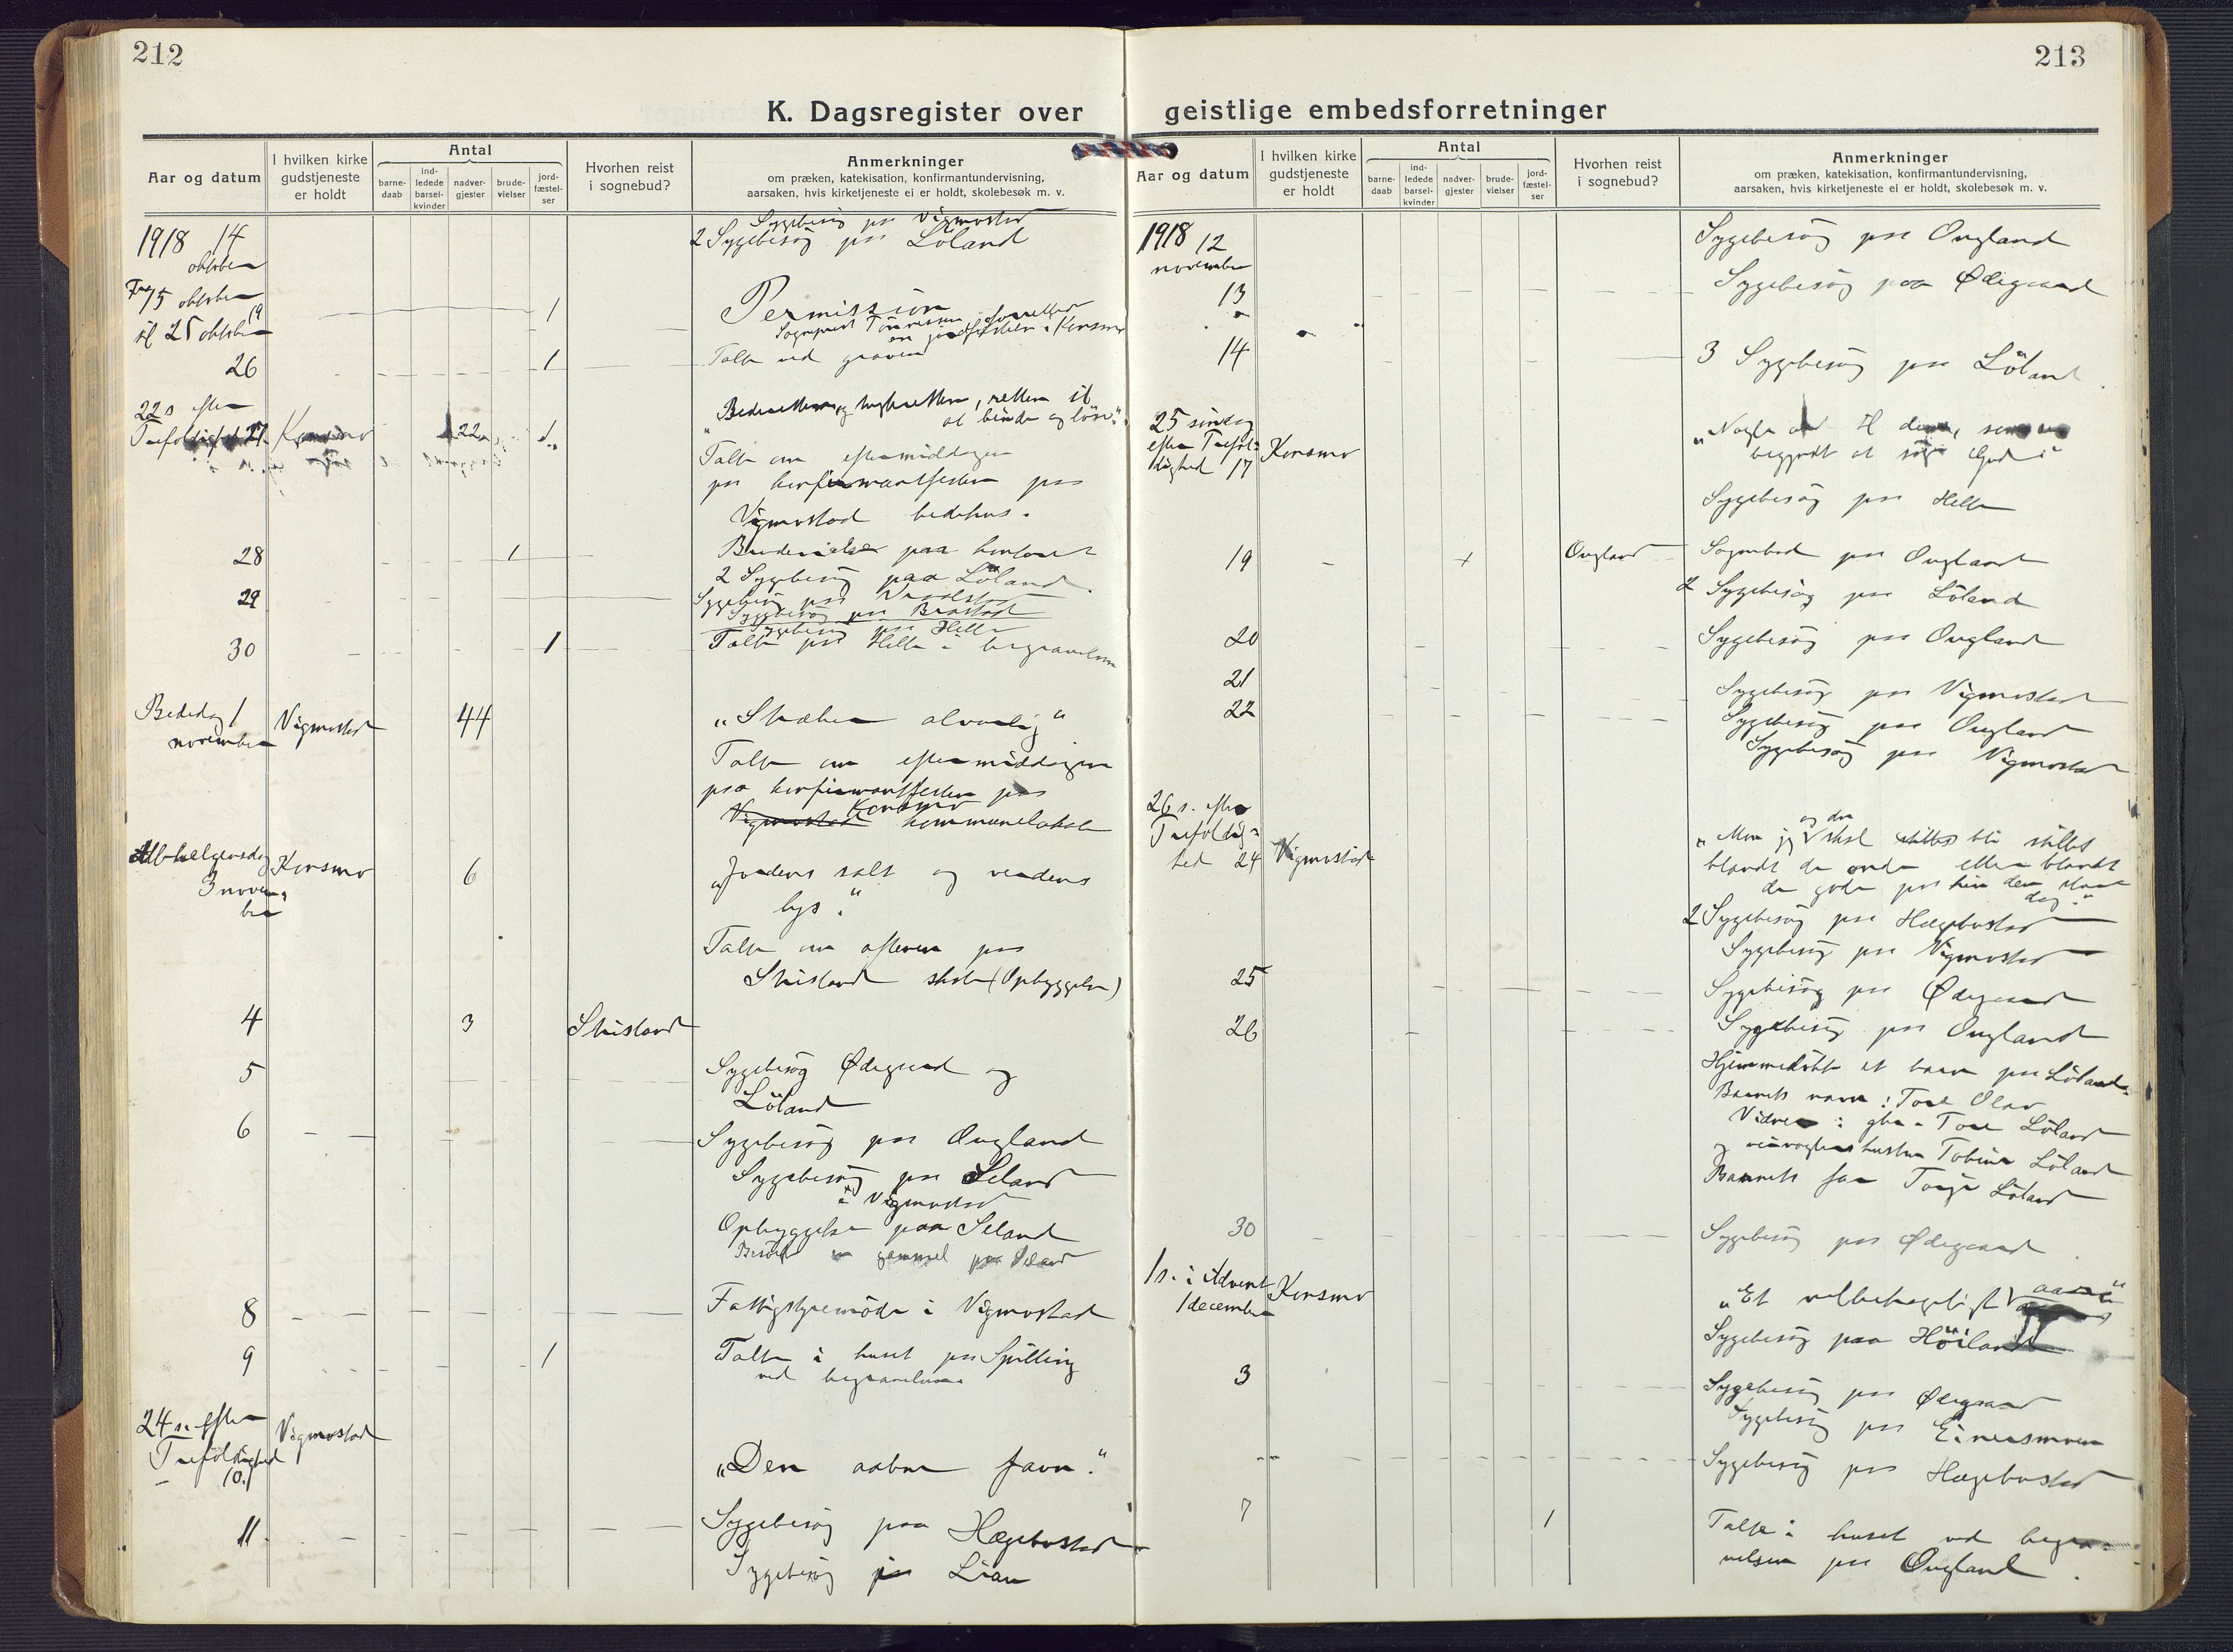 212
K. Dagsregister over
Aar og datum
I hvilken kirke
gudstjeneste
er holdt
Antal
barne-
daab
ind-
ledede
barsel-
kvinder
nadver-
gjester
brude-
vielser
jord-
fæstel-
ser
Hvorhen reist
i sognebud?
Anmerkninger
om præken, katekisation, konfirmantundervisning,
aarsaken, hvis kirketjeneste ei er holdt, skolebesøk m. v.
1918 14
oktober
Sygebesög paa Vigmostad
2 Sygebesög paa Löland
Fra 15 oktober
til 25 oktober
1
Permission
Sogneprest forretter
en jordfæstelse i Konsmo
26
1
Talte ved graven
22 s efter
Trefoldighed 27
Konsmo
22
at binde og löse."
Talte om eftermiddagen
paa konfirmantfesten paa
Vigmostad bedehus.
28
1
Brudevielse paa kontoret
2 Sygebesög paa Löland
29
Sygebesög paa
Sygebesög paa
Sygebesög paa Helle
30
1
Talte paa Helle i begravelsen
Bededag 1
november
Vigmostad
44
"Stræben alvorlig"
Talte om eftermiddagen
paa konfirmantfesten paa
Vigmostad Konsmo kommunelokale
Allehelgensdag
3 novem-
ber
Konsmo
6
"Jordens salt og verdens
lys."
Talte om aftenen paa
skole (Opbyggelse)
4
3
5
Sygebesög Ødegaard og
Löland
6
Sygebesög paa Øugland
Sygebesög paa Seland
i Vigmostad
Opbyggelse paa Seland
Besögte en gammel paa Seland
8
Fattigstyremöde i Vigmostad
9
1
Talte i huset paa Spilling
ved begravelsen
24 s. efter
Trefoldighed
10.
Vigmostad
"Den aabne favn."
11.
Sygebesög paa Hægebostad
Sygebesög paa Lian
213
geistlige embedsforretninger
Aar og datum
I hvilken kirke
gudstjeneste
er holdt
Antal
barne-
daab
ind-
ledede
barsel-
kvinder
nadver-
gjester
brude-
vielser
jord-
fæstel-
ser
Hvorhen reist
i sognebud?
Anmerkninger
om præken, katekisation, konfirmantundervisning,
aarsaken, hvis kirketjeneste ei er holdt, skolebesøk m. v.
1918 12
november
Sygebesög paa Øugland
13
Sygebesög paa Ødegaard
14
3 Sygebesög paa Löland
25 söndag
efter Trefol-
dighed 17
Konsmo
"Nogle ord til dem, som
begyndt at söge Gud"
Sygebesög paa Helle
19
Øugland
Sognebud paa Øugland
2 Sygebesög paa Löland
20
Sygebesög paa Øugland
21
Sygebesög paa Vigmostad
22
Sygebesög paa Øugland
Sygebesög paa Vigmostad
26 s. efter
Trefoldig-
hed 24
Vigmostad
"Mon jeg og du skal bli stillet
blandt de onde eller blandt
de gode paa hin den store
dag."
2 Sygebesög paa Hægebostad
Sygebesög paa Vigmostad
25
Sygebesög paa Ødegaard
26
Sygebesög paa Øugland
Hjemmedöbte et barn paa Löland.
Barnets navn: Tore Olav
Vidner: gbr. Tore Löland
og veivogterhustru Tobine Löland
Barnets far Torje Löland
30
Sygebesög paa Ødegaard
1 s. i Advent
1 december
Konsmo
"Et velbehageligt aar"
Sygebesög paa Höiland
3
Sygebesög paa Ødegaard
Sygebesög paa Einersmoen
Sygebesög paa Hægebostad
7
1
Talte i huset ved begra-
velsen paa Øugland.